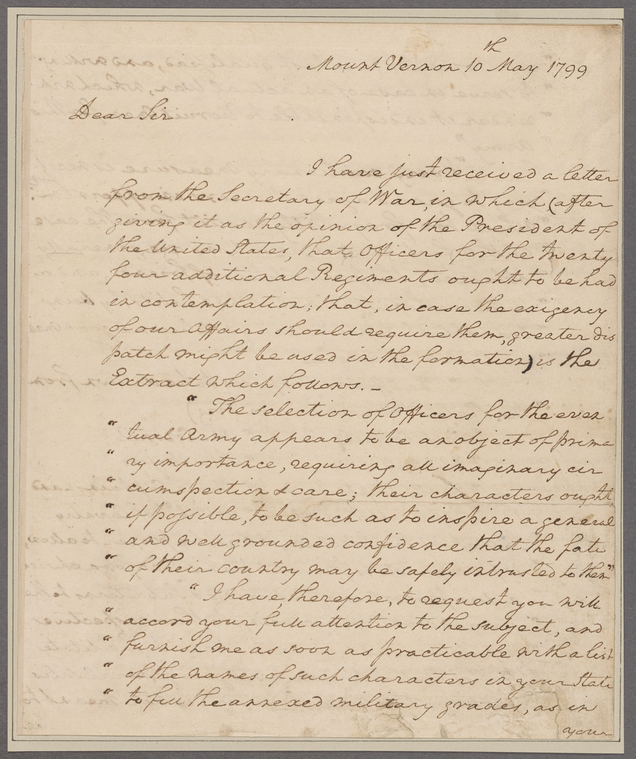 Mount Vernon 10th May 1799
Dear Sir
I have just received a letter
from the Secretary of War, in which (after
giving it as the opinion of the President of
the United States, that Officers for the twenty
four additional Regiments ought to be had
in contemplation; that, in case the exigency
of our Affairs should require them, greater dis
patch might be used in the formation) is the
Extract which follows. –
" The selection of Officers for the even
" tual Army appears to be an object of prima
" ry importance, requiring all imaginary cir
" cumspection & care; their characters ought,
" if possible, to be such as to inspire a general
" and well grounded confidence that the fate
" of their country may be safely intrusted to them"
" I have, therefore, to request you will
" accord your full attention to the subject, and
" furnish me as soon as practicable with a list
" of the names of such characters in your State
" to fill the annexed military grades, as in
your